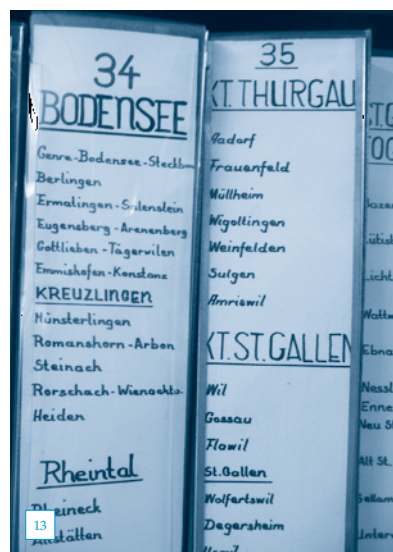 34
BODENSEE
Genre-Bodensee-
Berlingen
Ermatingen-Salenstein
Eugensberg-Arenenberg
Gottlieben-Tägerwilen
Emmishofen-Konstanz
KREUZLINGEN
Münsterlingen
Romanshorn-Arbon
Steinach
Rorschach-Wienachto.
Heiden
Rheintal
Rheineck
Altstätten
13
35
KT.THURGAU
Aadorf
Frauenfeld
Müllheim
Wigoltingen
Weinfelden
Sulgen
Amriswil
KT.ST.GALLEN
Wil
Gossau
Flawil
St.Gallen
Wolfertswil
Degersheim
Ebna
Nessl
Enne
Neu S
Alt St.